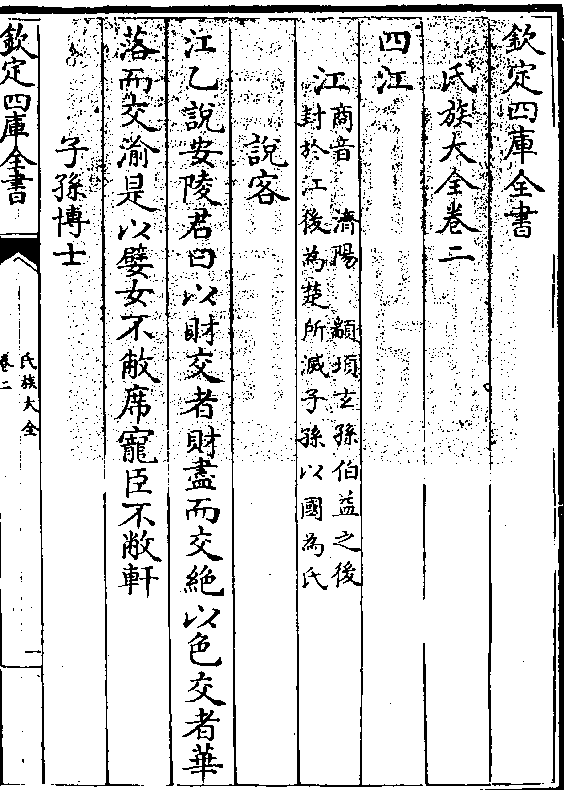 欽定四庫全書
氏族大全卷二
四江
江商音 濟陽 顓頊玄孫伯益之後
封於江後為楚所滅子孫以國為氏
說客
江乙說安陵君曰以財交者財盡而交絶以色交者華
落而交渝是以嬖女不敝席寵臣不敝軒
子孫博士
欽定四庫全書
氏族大全
卷二
一